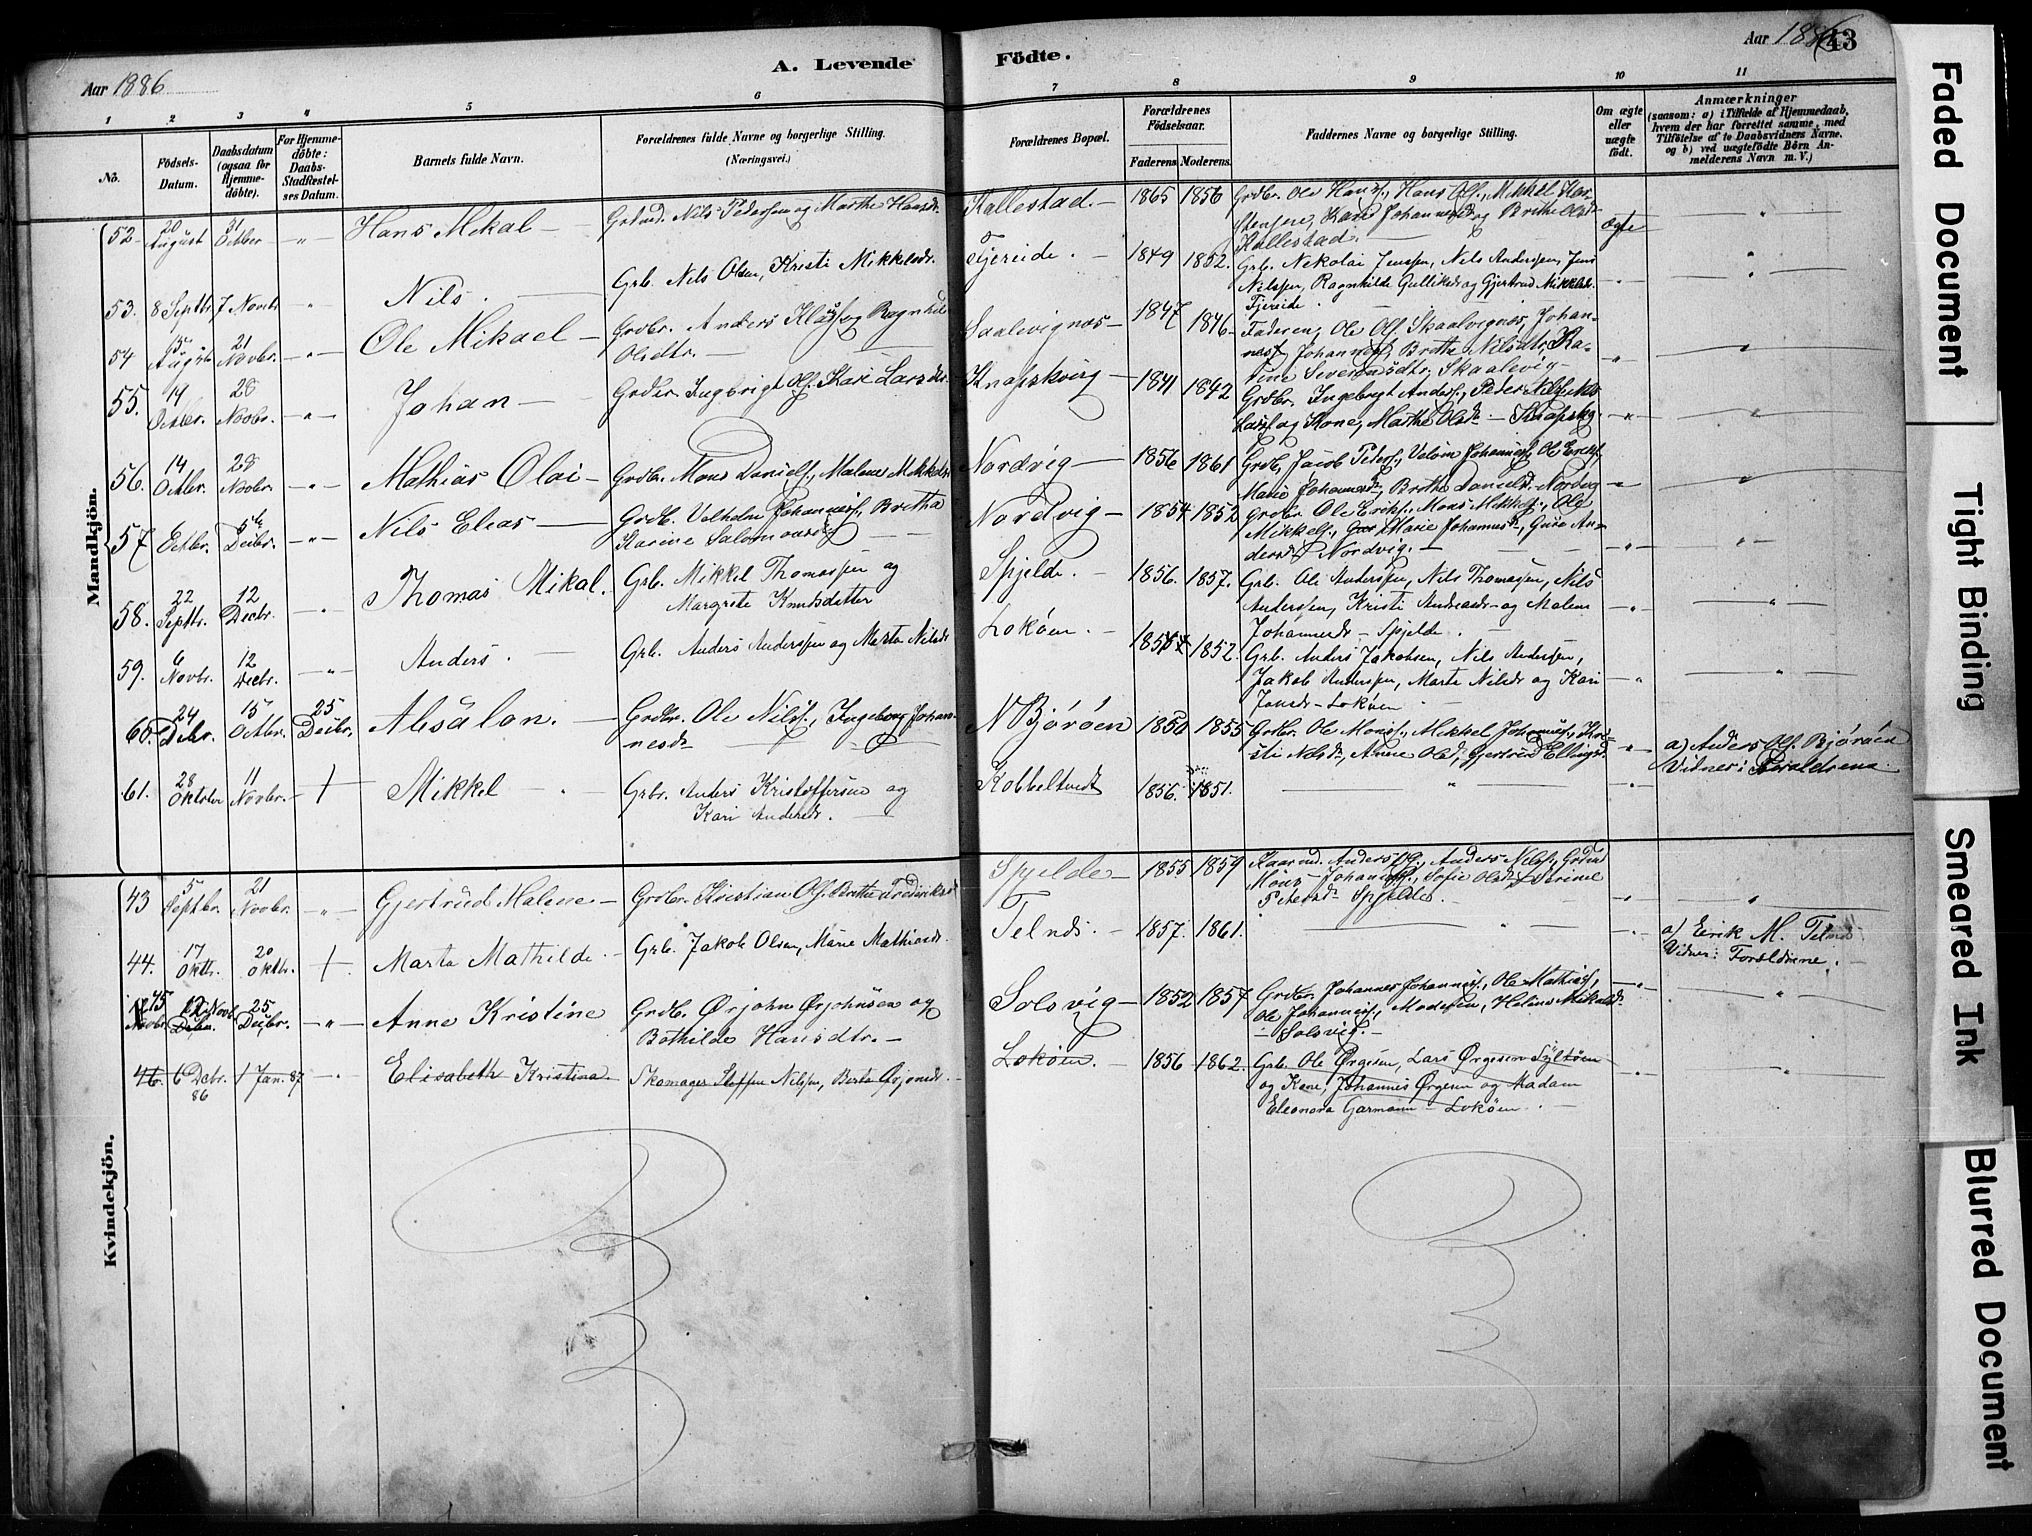 Aar 1886
A. Levende
Födte.
Aar 1886
43
1 2 3 4 5 6 7 8 9 10 11
No.
Födsels-
Datum.
Daabsdatum
(ogsaa for
Hjemme-
döbte).
For Hjemme-
döbte:
Daabs-
Stadfæstel-
ses Datum.
Barnets fulde Navn.
Forældrenes fulde Navne og borgerlige Stilling.
(Næringsvei.)
Forældrenes Bopæl.
Forældrenes
Födselsaar.
Faderens. Moderens.
Faddernes Navne og borgerlige Stilling.
Om ægte
eller
uægte
födt.
Anmærkninger
(saasom: a) i Tilfælde af Hjemmedaab,
hvem der har forrettet samme, med
Tilföielse af to Daabsvidners Navne,
og b) ved uægtefödte Börn An-
melderens Navn m. V.)
Mandkjön.
52. 20 August 31 Octber Hans Mikal Grdmd. Nils Pedersen og Marthe Hansdr. Kallestad. 1865 1856 Grdbr. Ole Hansf., Hans Olf., Mikkel Kar-
stensen, Kari Johannesd og Brithe Olsdr
Kallestad. ægte
53. 8 Septbr. 7 Novbr Nils. Grb. Nils Olsen, Kristi Mikkelsdr. Tjereide. 1849 1852. Grb. Nikolai Jenssen, Nils Anderssen, Jens
Nilssen, Ragnhilde Gulliksdr og Gjertrud Mikkelsd.
Tjereide.
54 15 August 21 Novbr. Ole Mikael Grdbr. Anders Klausf og Ragnhild
Olsdtr. Saalevignæs 1847 1846 Faderen, Ole Olf. Skaalvignæs, Johan-
nes Johannesf, Brithe Nilsdtr, Ka-
rine Severinsdtr, Skaalvig
55. 19 Octbr. 28 Novbr. Johan Grdbr. Ingbrigt Olf. Kari Larsdtr. Knapskvig 1841 1842 Grdbr. Ingebrigt Andersf., Peder Nilsf, Nils
Larsf og Kone, Marthe Olsdr
56. 14 Octbr. 28 Novbr. Mathias Olai Grdbr. Mons Danielf., Malene Mikkelsdr Nordvig 1856 1861 Grdb, Jacob Pedersf., Velom Johannesf., Ole Eriksf.,
Marie Johannesdr, Brithe Danielsdr Nordvig
57 Octbr. 5te Decbr. Nils Elias Grdb. Velhelm Johannesf., Bretha
Karine Salomonsd Nordvig 1854 1852 Grdbr Ole Eriksf., Mons Mikkelsf., Ole
Mikkelsf., Marie Johannesdr., Guro An-
dersdtr Nordvig.
58. 22 Septbr. 12 Decbr. Thomas Mikal. Grb. Mikkel Thomassen og
Margrete Knudsdatter Spjelde. 1856. 1857. Grb. Ole Anderssen, Nils Thomassen, Nils
Anderssen, Kristi Andreasdr og Malene
Johannesdr - Spjelde.
59. 6 Novbr. 12 Decbr. Anders. Grb. Anders Anderssen og Marta Nilsdr Lokøen. 1854 1852. Grb. Anders Jakobsen, Nils Andersen,
Jakob Anderssen, Marta Nilsdr og Kari
Jonsdr - Lokøen
60. 24 Decbr. 15 Octbr. 25 Decbr. Absalon. Grdbr. Ole Nilsf., Ingeborg Johan-
nesdr N Bjørøen 1850 1855 Grdbr. Ole Monsf., Mikkel Johannesf., Kri-
sti Nilsdr, Anne Olsd, Gjertrud Ellingsd. a) Anders Olf. Bjørøen
Vidner: Forældrene.
61. 28 Oktober 11 Novbr. Mikkel Grbr. Anders Kristoffersen og
Kari Andersdr. Kobbeltvedt 1856. 1851.
Kvindekjön.
43 5 Septbr. 21 Novbr. Gjertrud Malene Grdbr. Kristian Olf. Brithe Fredriksdr Spjelde 1855 1859 Anders Olf., Anders Nilsf., Grdmd
Mons Johannesf., Sofie Olsdr, Serine
Petersdr Spjelde.
44. 17 Oktbr. 20 Oktbr. Marta Mathilde. Grb. Jakob Olsen, Marie Mathiasdr. Telnes. 1857. 1861. a) Eirik M. Telnes
Vidner: Forældrene.
45 22 Novbr 25 Decbr. Anne Kristine Grdb. Ørjohn Ørjohnsen og
Bothilde Hansdtr. Solsvig 1852 1857 Grdbr. Johannes Johannesf., Ole Mathiasf.,
Ole Johannesf., Moderen, Heline Mikalsdr.
Solsvig.
46. 6 Decbr. 86 1 Jan. 87 Elisabeth Kristina. Skomager Steffen Nilssen, Berta Ørjansdr. Lokøen. 1856 1862. Grb. Ole Ørgesen, Lars Ørgesen Syltøen
og Kone, Johannes Ørgesen og Madam
Eleonora Garmann - Lokøen.
Faded Document
Tight Binding
Smeared Ink
Blurred Document